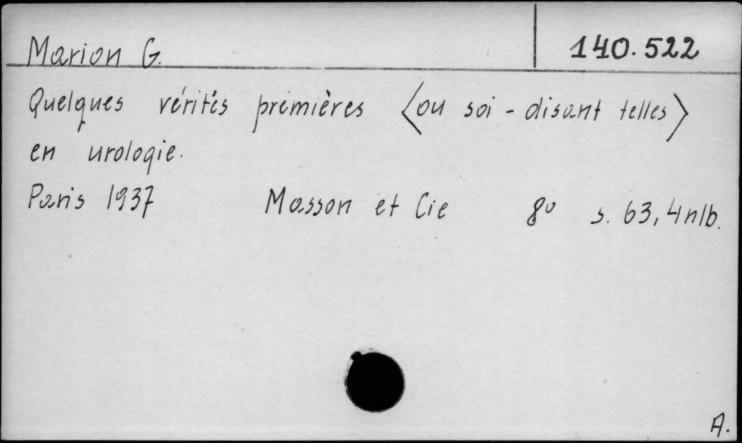 Marion G. 140.522
Quelques vérités premières <ou soi-disant telles>
en urologie.
Paris 1937 Masson et Cie 8° s. 63, 4 nlb.
A.